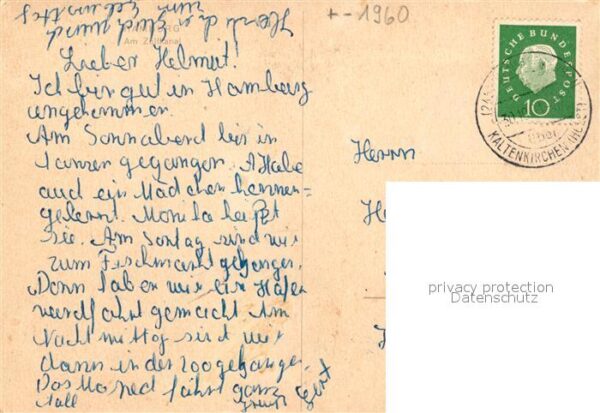 +-1960
Herzliche
zum Geburtstag
HAMBURG
Am Zeitkanal
Lieber Helmut.
Ich bin gut in Hamburg
angekommen.
Am Sonnabend bin
tanzen gegangen. Habe
auch ein Mädchen kennen=
gelernt. Monika heist
sie. Am Sontag sind wir
zum Fischmarkt gegangen.
Dann haben wir ein Hafen
rundfahrt gemacht Am
Nachmittag sind wir
dann in der zoo gegangen
Das Moped fährt ganz
toll
Gert
DEUTSCHE BUNDESPOST
10
über
KALTENKIRCHEN (HOLST)
Herrn
H
privacy protection
Datenschutz